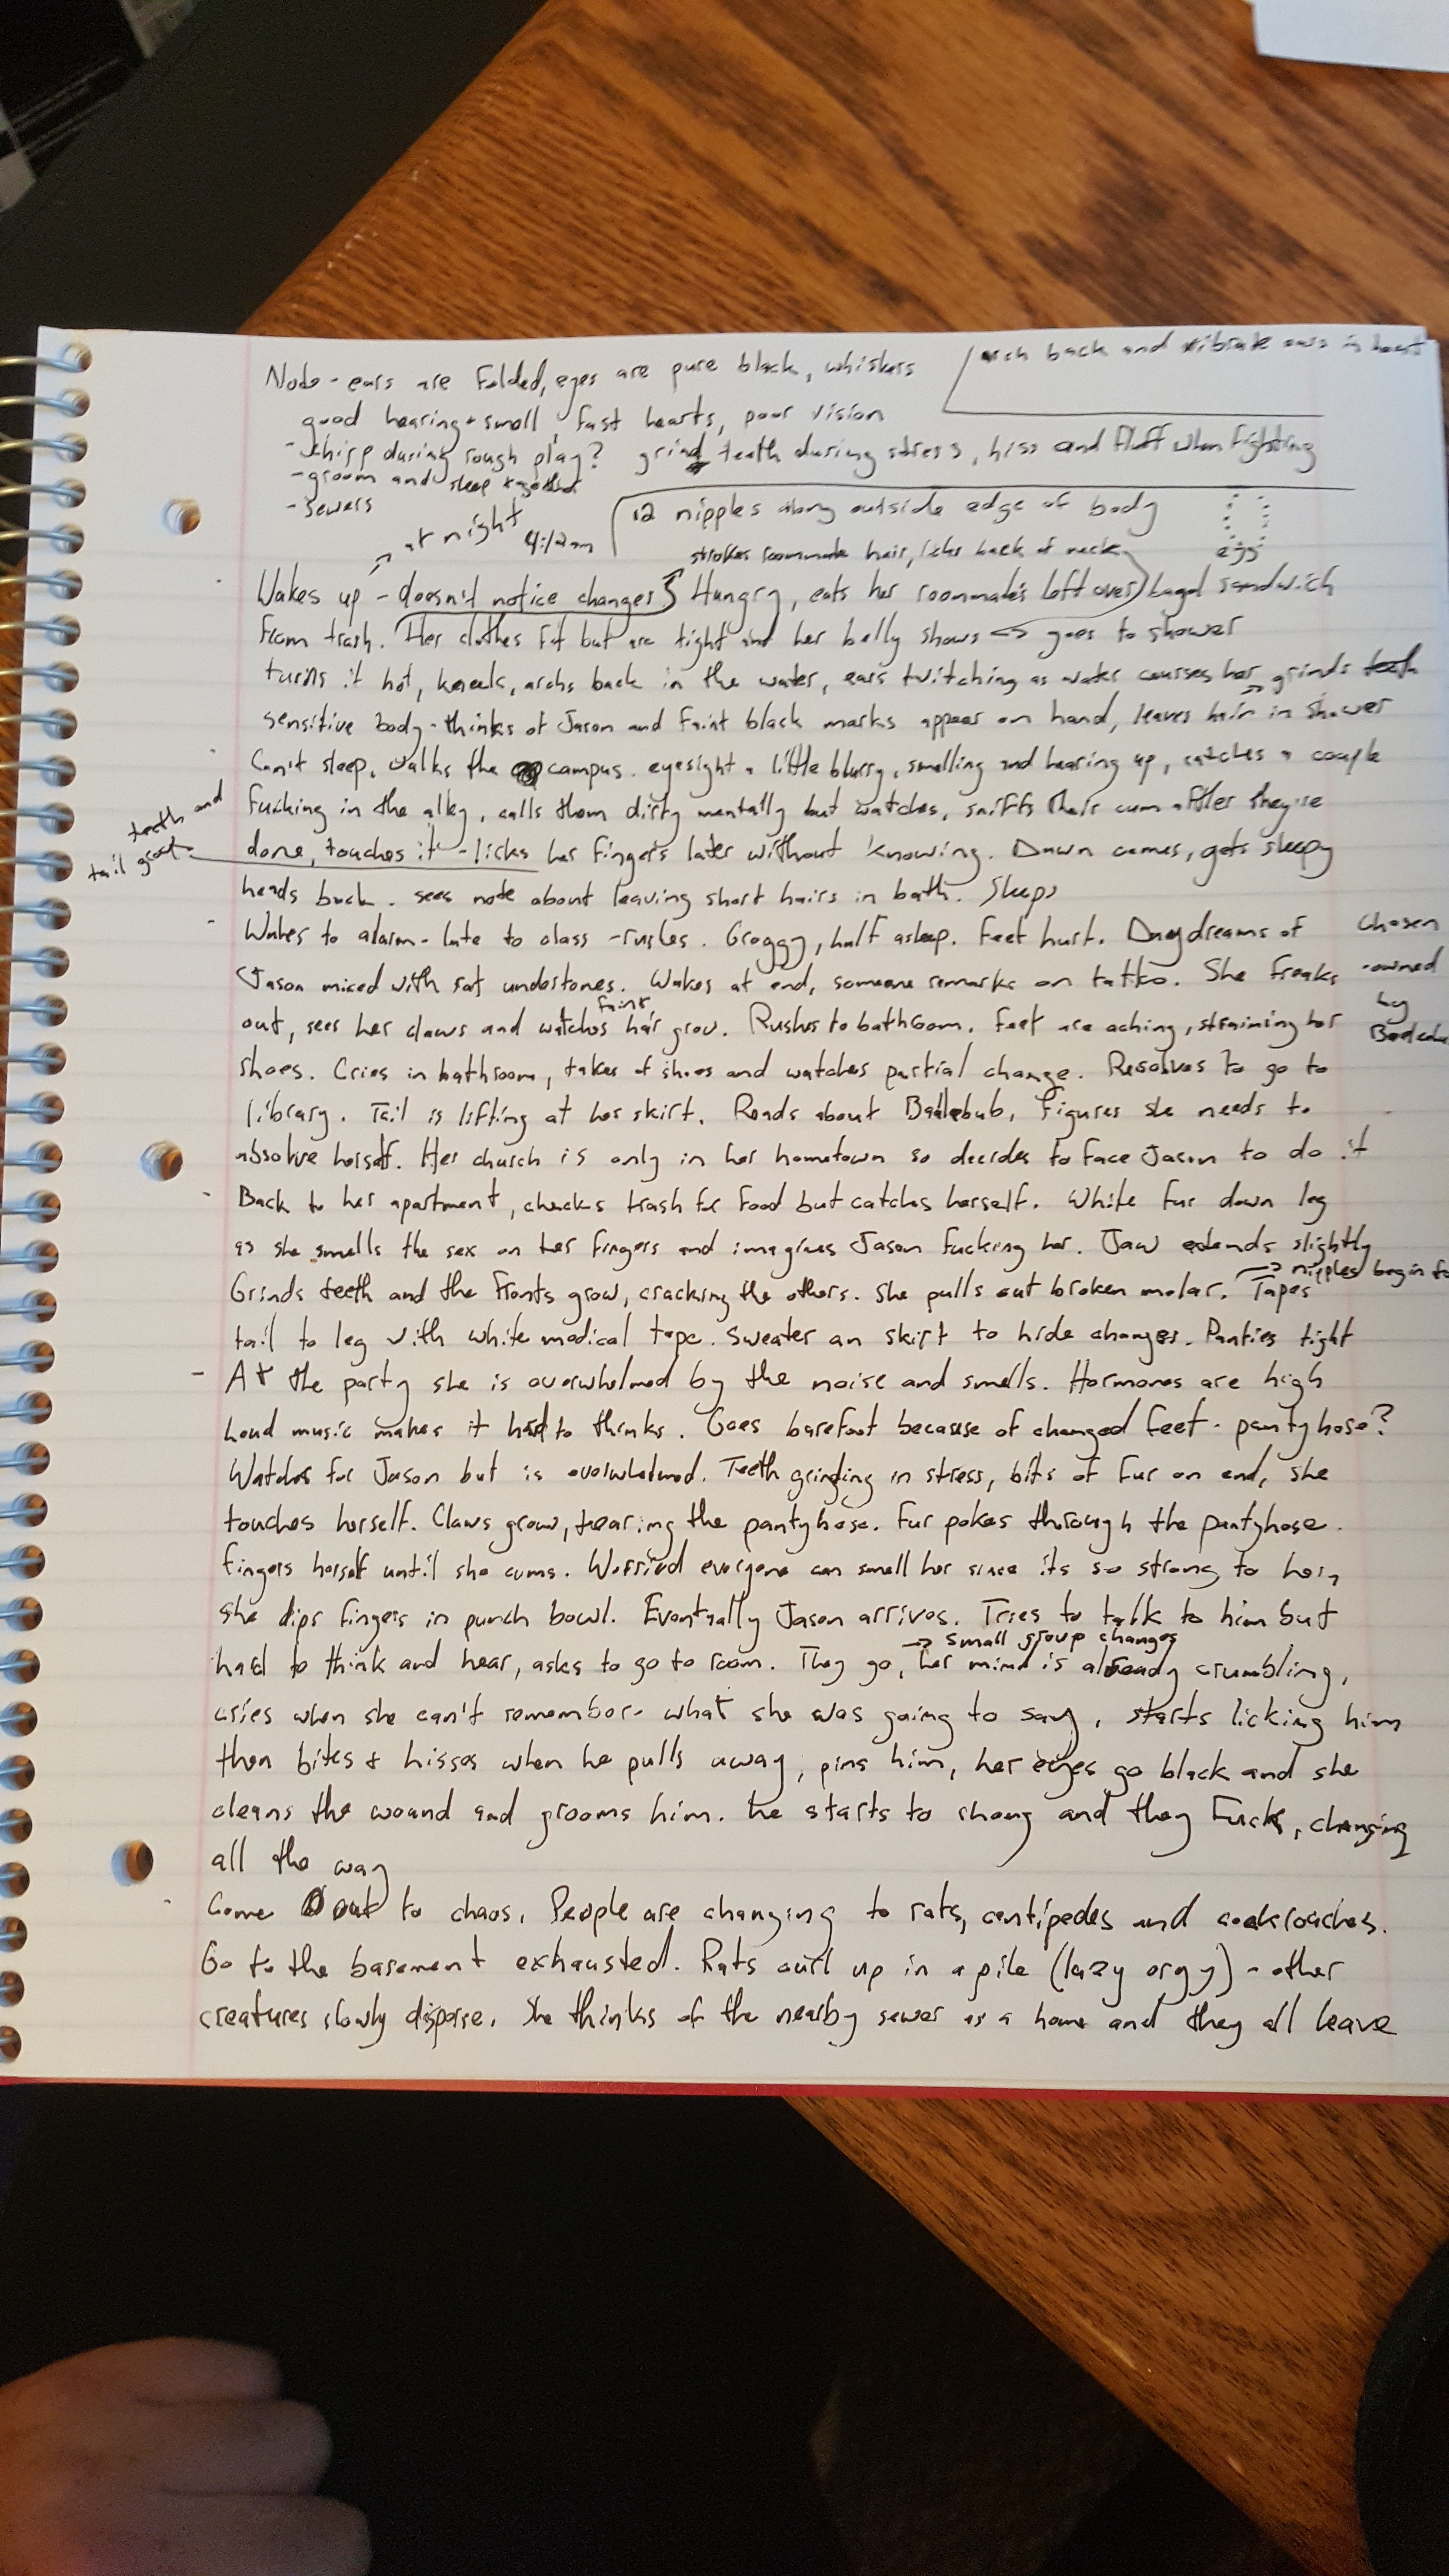 Note - ears are folded, eyes are pure black, whiskers
arch back and vibrate ears in heat
good hearing + smell, fast hearts, poor vision
- Chirp during rough play? grind teeth during stress, hiss and fluff when fighting
- groom and sleep together
- Sewers
12 nipples along outside edge of body
at night 4:12am
strokes roommate hair, licks back of neck
Wakes up - doesn't notice changes Hungry, eats her roommate's left over bagel sandwich
from trash. Her clothes fit but are tight and her belly shows goes to shower
turns it hot, kneels, archs back in the water, ears twitching as water courses her grinds teeth
sensitive body - thinks of Jason and faint black marks appear on hand, leaves hair in shower
Can't sleep, walks the campus. eyesight a little blurry, smelling and hearing up, catches a couple
fucking in the alley, calls them dirty mentally but watches, sniffs their cum after they're
teeth and tail grow
done, touches it - licks her fingers later without knowing. Dawn comes, gets sleepy
heads back. sees note about leaving short hairs in bath. Sleeps
Wakes to alarm - late to class - rushes. Groggy, half asleep. Feet hurt. Daydreams of
Chosen
- owned
by
Jason mixed with rat undertones. Wakes at end, someone remarks on tattoo. She freaks
faint
out, sees her claws and watches hair grow. Rushes to bathroom. Feet are aching, straining her
shoes. Cries in bathroom, takes of shoes and watches partial change. Resolves to go to
library. Tail is lifting at her skirt. Reads about Beelzebub, figures she needs to
absolve herself. Her church is only in her hometown so decides to face Jason to do it
Back to her apartment, checks trash for food but catches herself. White fur down leg
as she smells the sex on her fingers and imagines Jason fucking her. Jaw extends slightly
nipples begin to
Grinds teeth and the fronts grow, cracking the others. She pulls out broken molar. Tapes
tail to leg with white medical tape. Sweater an skirt to hide changes. Panties tight
- At the party she is overwhelmed by the noise and smells. Hormones are high
Loud music makes it hard to thinks. Goes barefoot because of changed feet - pantyhose?
Watches for Jason but is overwhelmed. Teeth grinding in stress, bits of fur on end, she
touches herself. Claws grow, tearing the pantyhose. Fur pokes through the pantyhose.
Fingers herself until she cums. Worried everyone can smell her since its so strong to her,
she dips fingers in punch bowl. Eventually Jason arrives. Tries to talk to him but
small group changes
hard to think and hear, asks to go to room. They go, her mind is already crumbling,
cries when she can't remember what she was going to say, starts licking him
then bites & hisses when he pulls away, pins him, her eyes go black and she
cleans the wound and grooms him. he starts to chang and they fuck, changing
all the way
Come out to chaos. People are changing to rats, centipedes and cockroaches.
Go to the basement exhausted. Rats curl up in a pile (lazy orgy) - other
creatures slowly disperse. She thinks of the nearby sewer as a home and they all leave